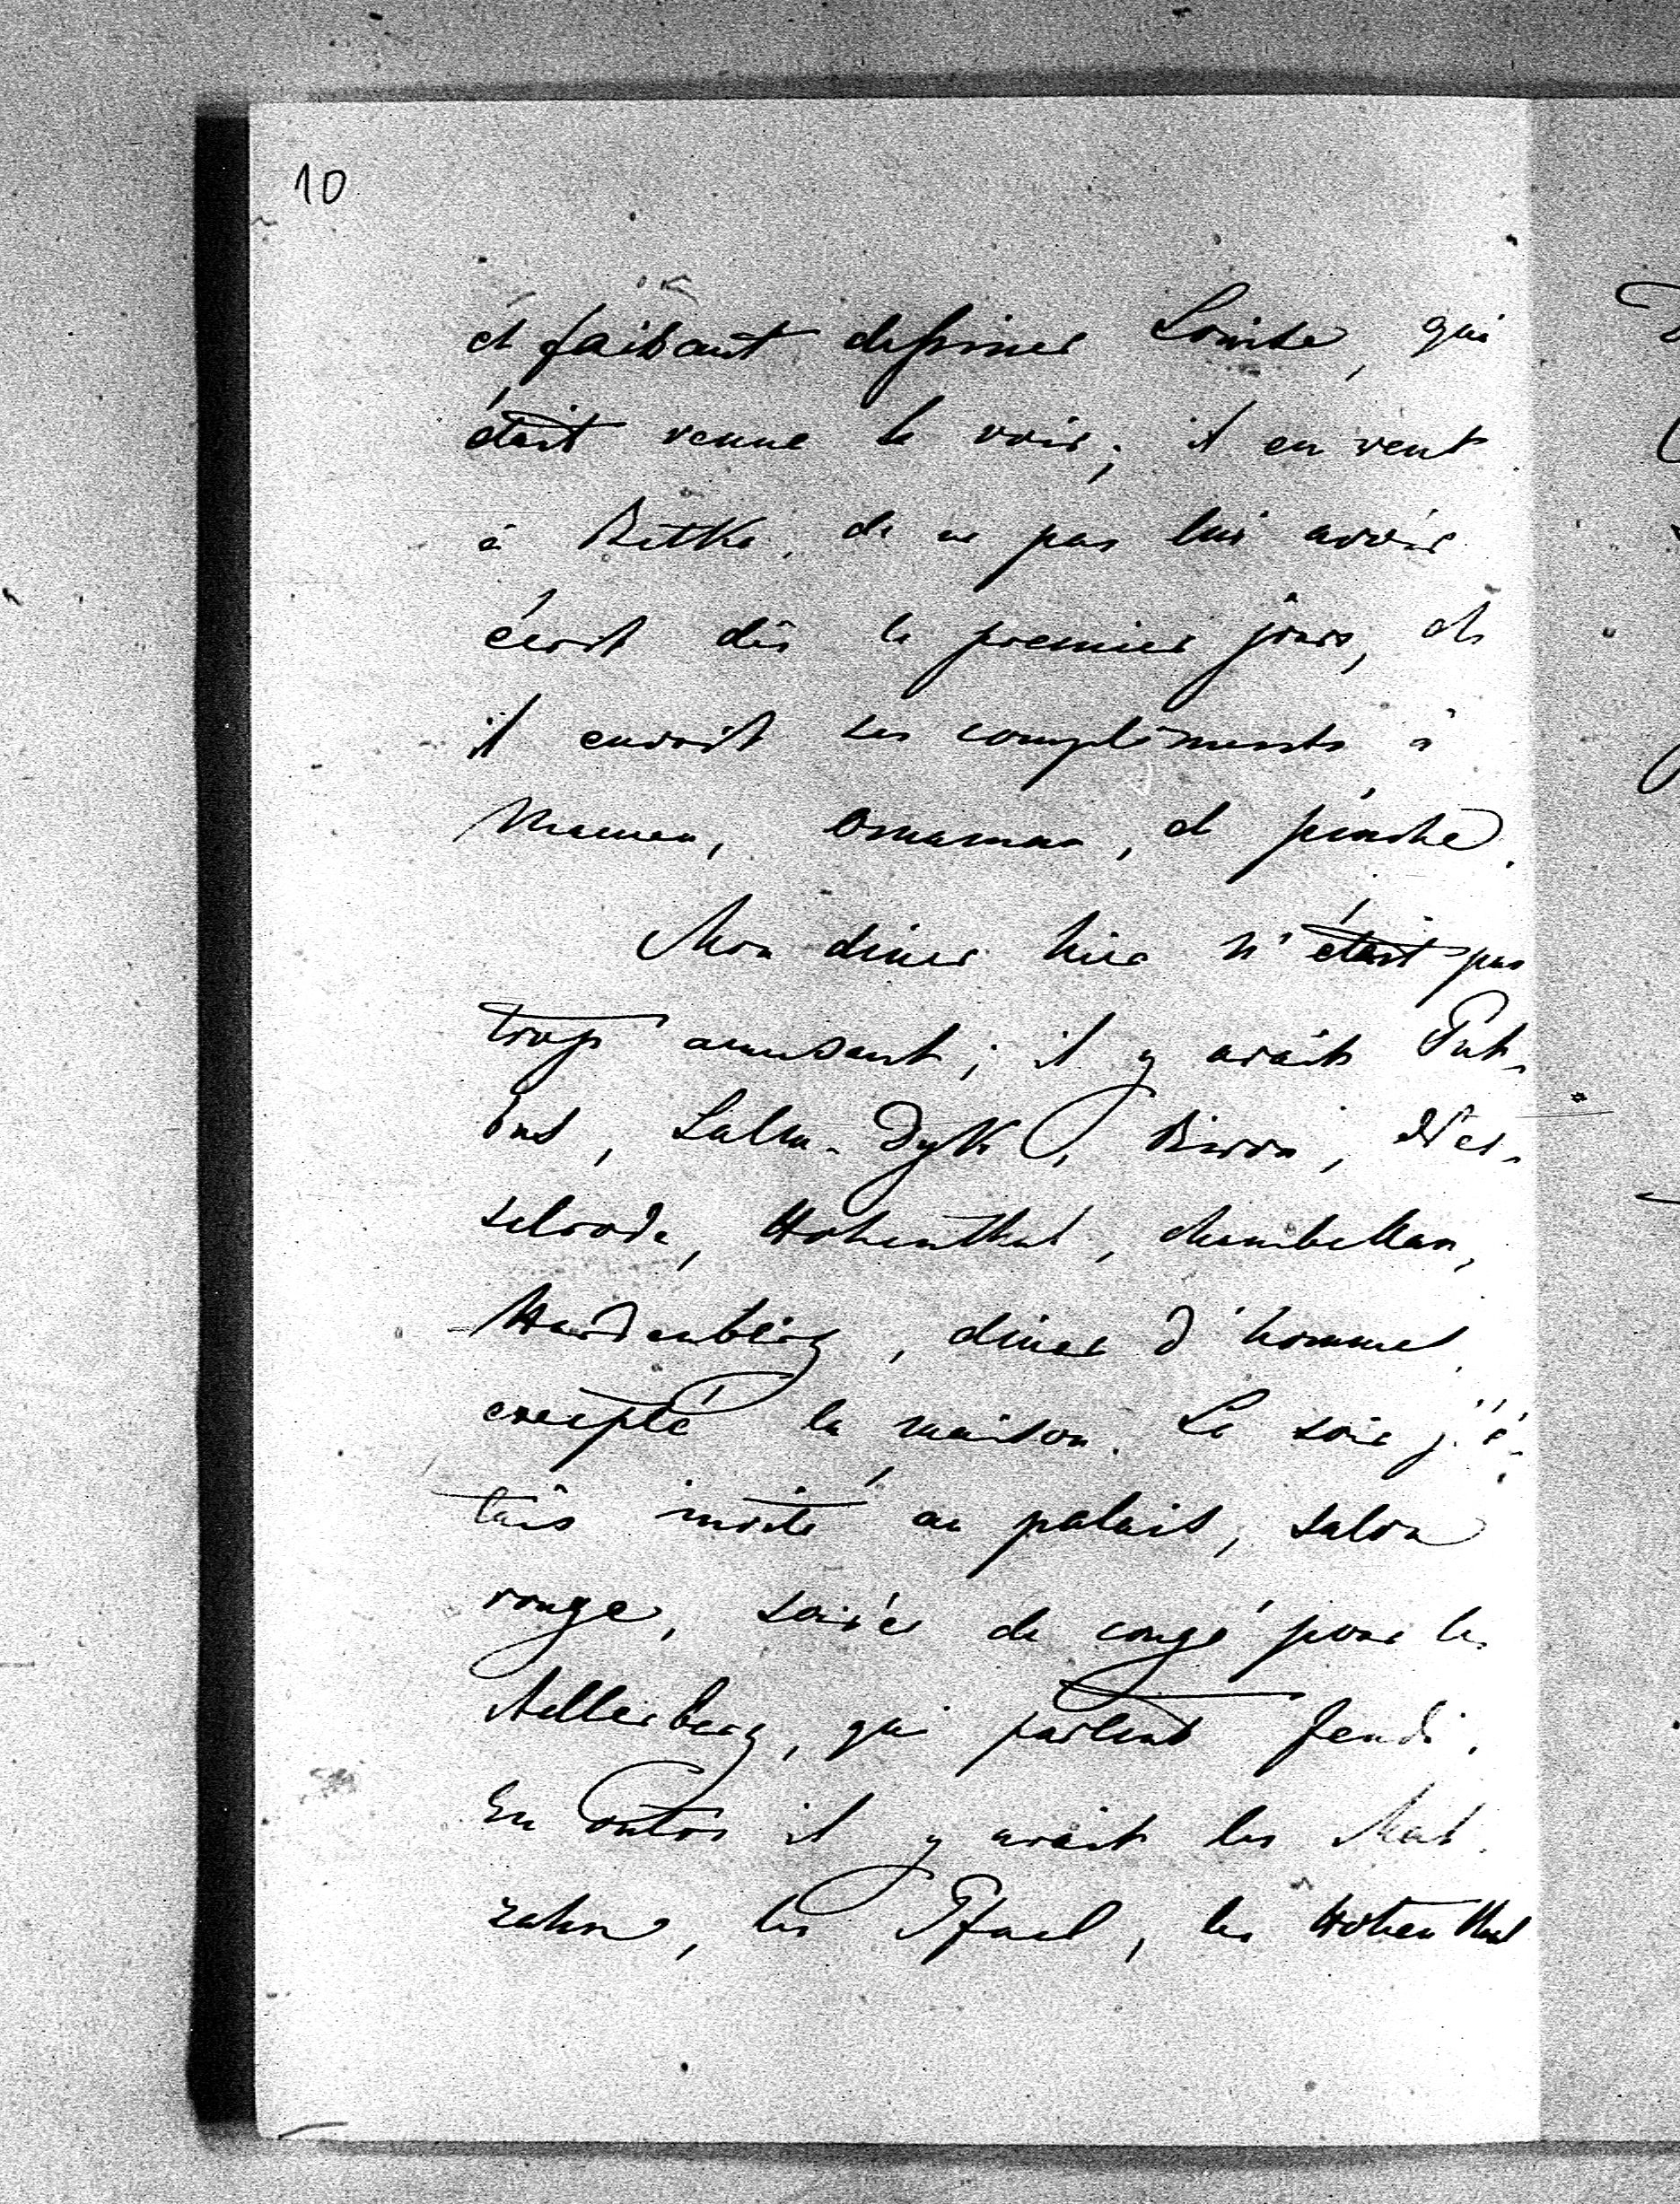 10
et faisant dessiner Louise, qui
était venue le voir; il en veut
à Bethe, de ne pas lui avoir
écrit dès le premier jour, et
il envoit ses compléments à
Maman, Omaman, et
Mon diner hier n'était pas
trop amusant; il y avait Put-
bus, Salm-Dyk, Biron, Nes-
selrode, Hohenthal, chambellan,
Hardenberg, diner d'hommes
excepté la maison. Le soir j'é-
tais invité au palais, salon
rouge, soirée de congé pour les
qui partent Jeudi.
En outre il y avait les Mal
zahn, les Pfuel, les Hohenthal